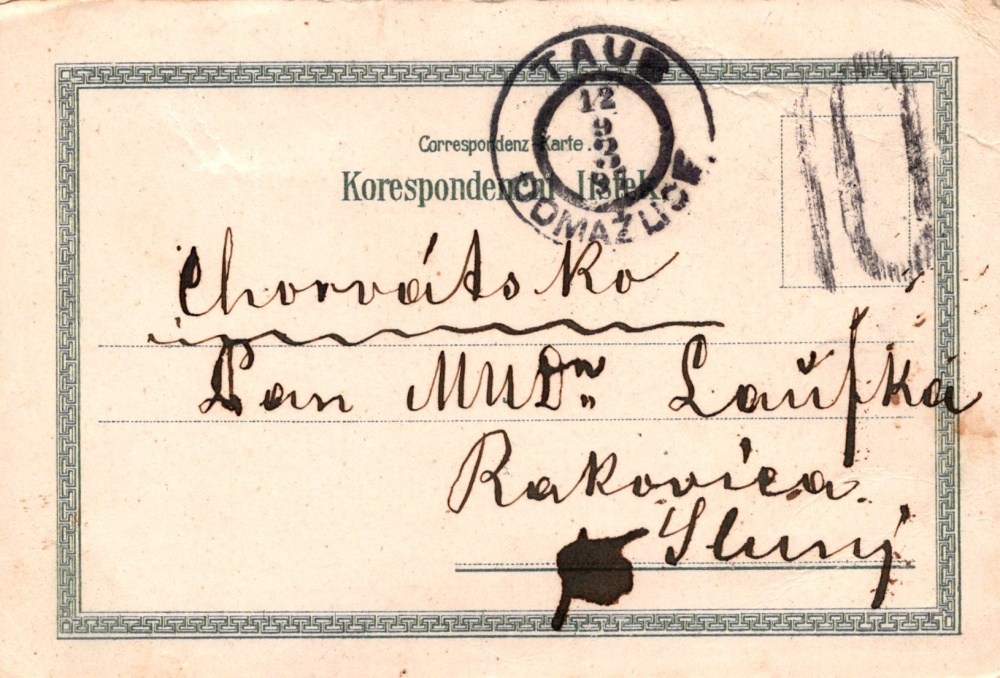 TAUS
12
9
DOMAŽLICE.
10
Correspondenz-Karte.
Korespondenční lístek
Chorvátsko
Pan MUDr
Rakovica
Sluný